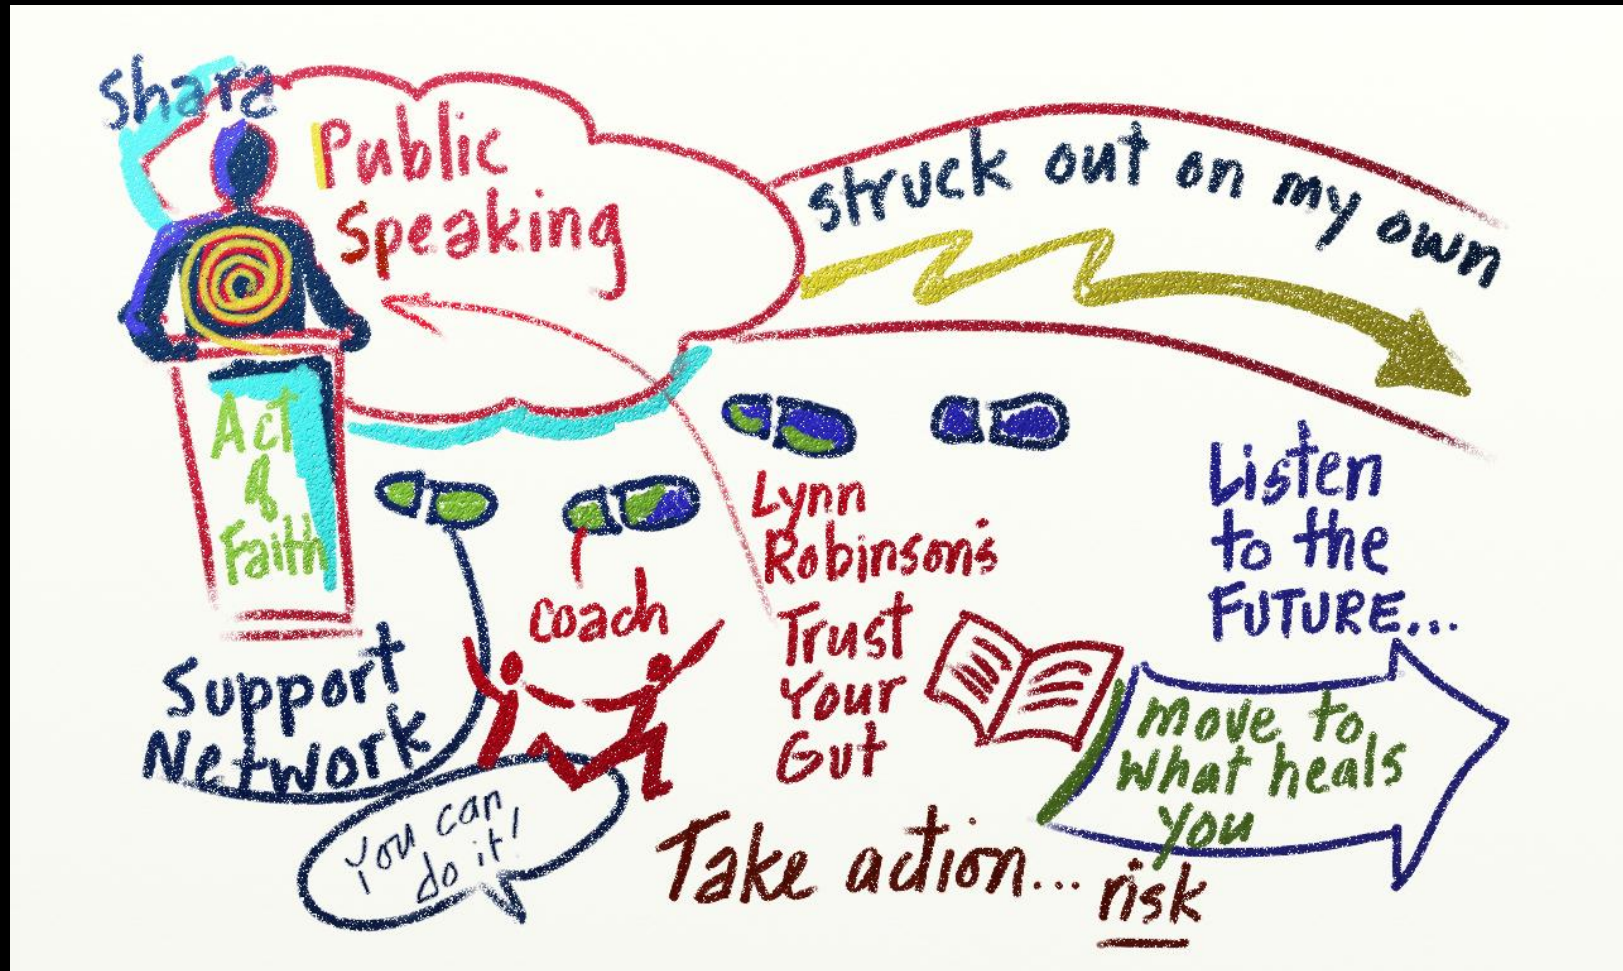 Share
Public
Speaking
struck out on my own
Act
of
Faith
Support
Network
coach
You can
do it!
Lynn
Robinson's
Trust
Your
Gut
Listen
to the
FUTURE...
move to
what heals
you
Take action... risk